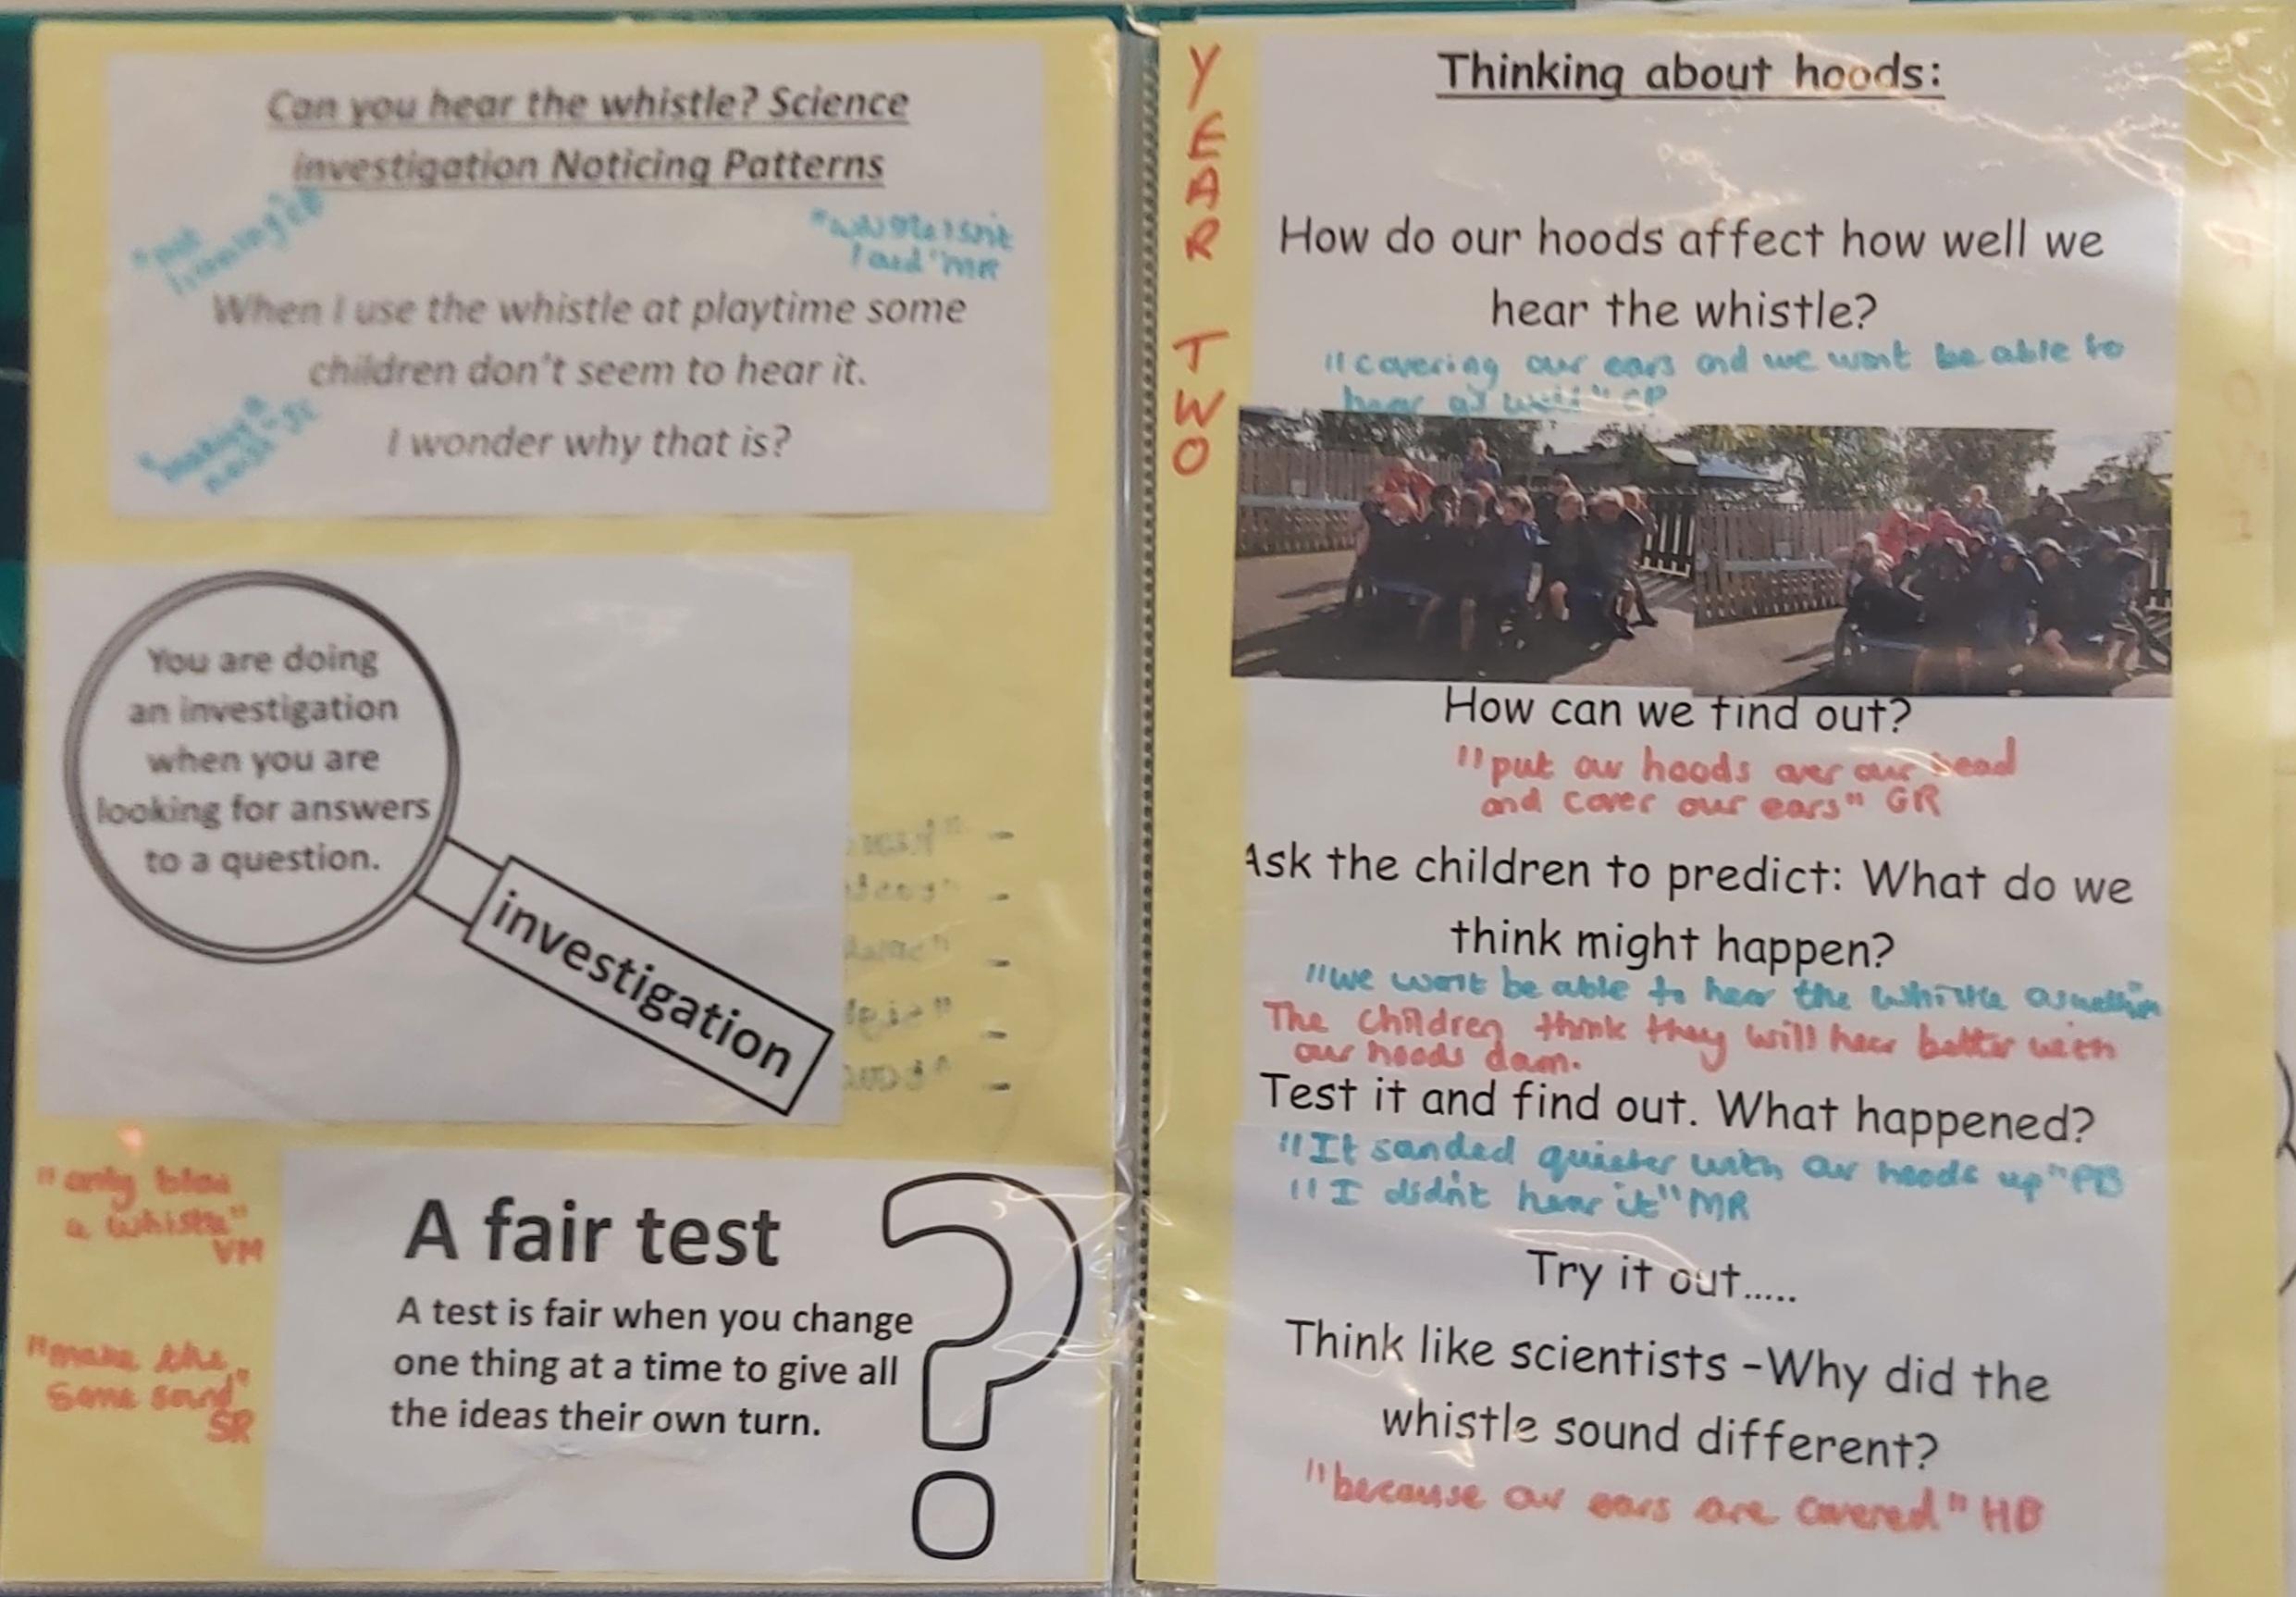 Can you hear the whistle? Science
investigation Noticing Patterns
"not
listening" CP
"whistle isn't
loud" MR
When I use the whistle at playtime some
children don't seem to hear it.
I wonder why that is?
"making
noise" JC
You are doing
an investigation
when you are
looking for answers
to a question.
investigation
"only blow
a whistle"
VM
"make the
same sound"
SR
A fair test
A test is fair when you change
one thing at a time to give all
the ideas their own turn.
?
YEAR TWO
Thinking about hoods:
How do our hoods affect how well we
hear the whistle?
"covering our ears and we wont be able to
hear as well" CP
How can we find out?
"put our hoods over our head
and cover our ears" GR
Ask the children to predict: What do we
think might happen?
"we wont be able to hear the whistle as well"
The children think they will hear better with
our hoods down.
Test it and find out. What happened?
"It sounded quieter with our hoods up" PB
"I didn't hear it" MR
Try it out.....
Think like scientists -Why did the
whistle sound different?
"because our ears are covered" HB